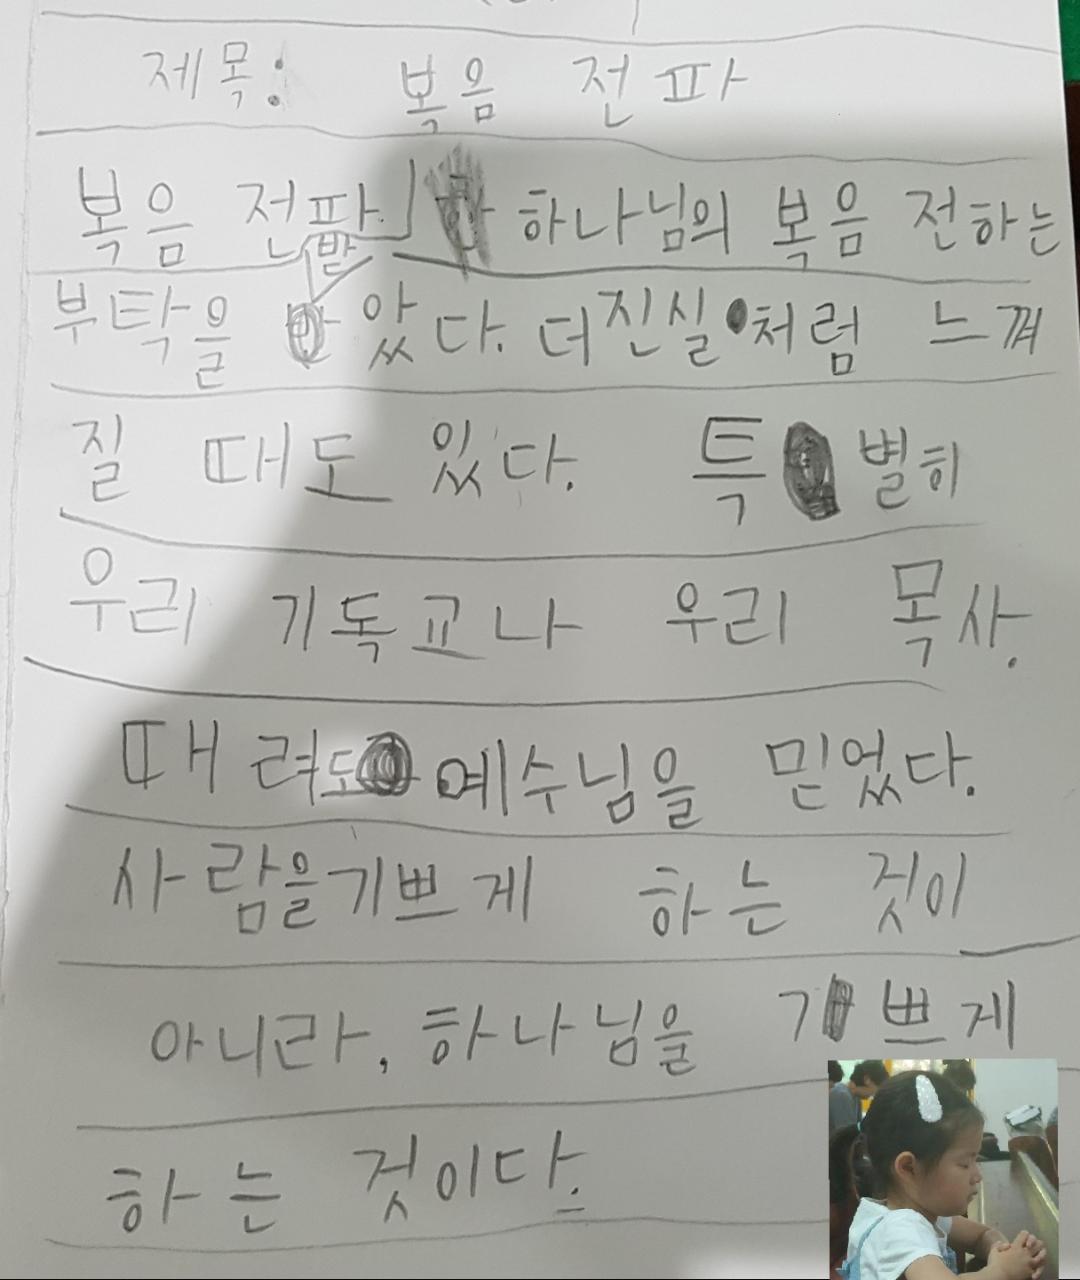 제목: 복음 전파
복음 전파 하나님의 복음 전하는
부탁을 받았다. 더진실처럼 느껴
질 때도 있다. 특별히
우리 기독교나 우리 목사.
때려도 예수님을 믿었다.
사람을기쁘게 하는 것이
아니라, 하나님을 기쁘게
하는 것이다.